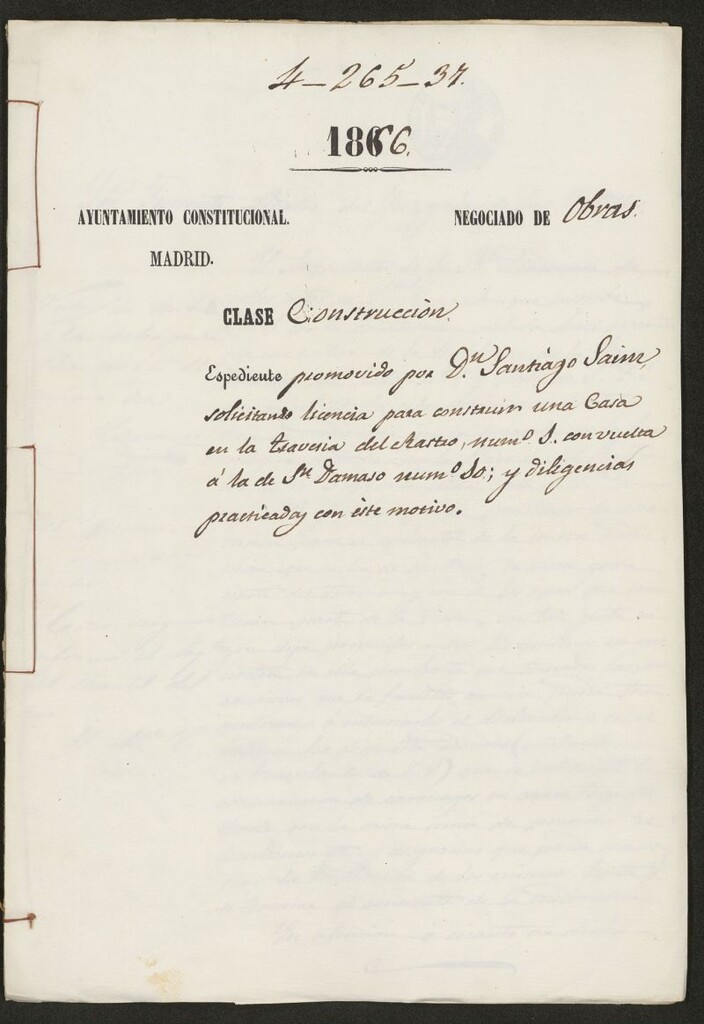 4-265-37.
1866.
AYUNTAMIENTO CONSTITUCIONAL.
MADRID.
NEGOCIADO DE Obras.
CLASE Construcción.
Espediente promovido por D.n Santiago Sainz,
solicitando licencia para construir una Casa
en la travesia del Rastro, num.o 1. con vuelta
á la de Sn Damaso num.o 10; y diligencias
practicadas con éste motivo.